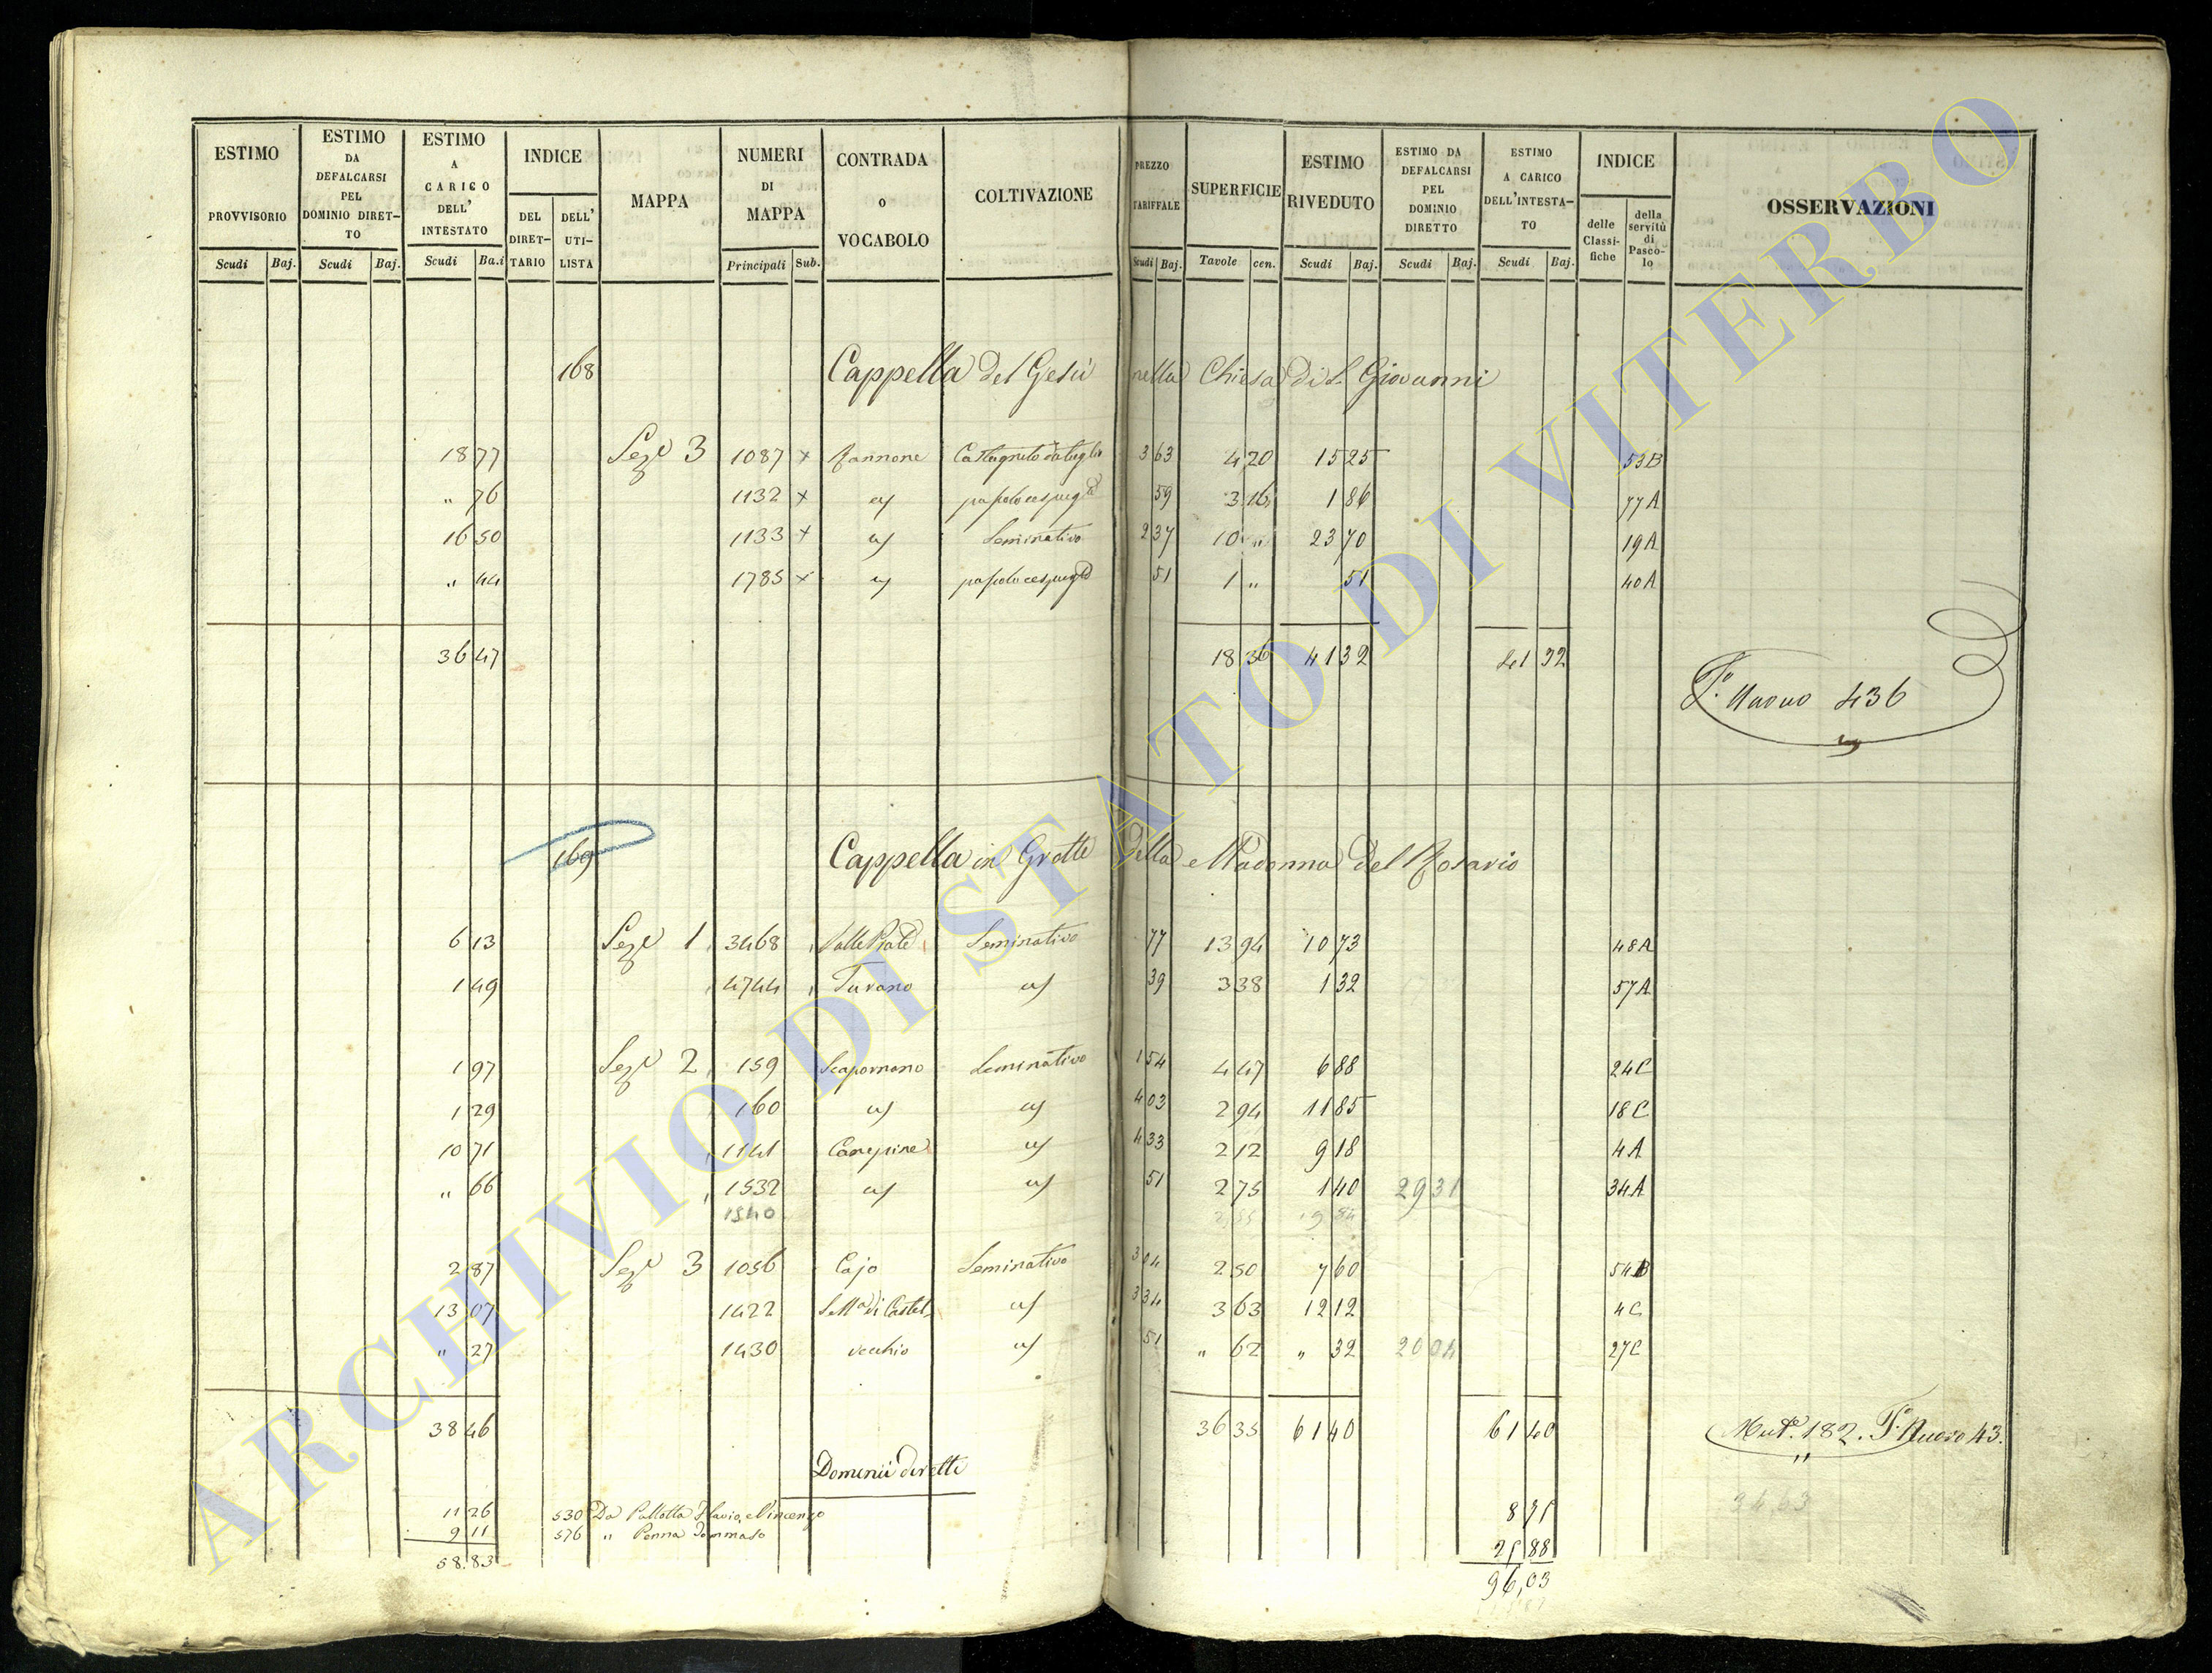 ESTIMO PROVVISORIO | ESTIMO DA DEFALCARSI PEL DOMINIO DIRETTO | ESTIMO A CARICO DELL' INTESTATO | INDICE | MAPPA | NUMERI DI MAPPA | CONTRADA O VOCABOLO | COLTIVAZIONE | PREZZO TARIFFALE | SUPERFICIE | ESTIMO RIVEDUTO | ESTIMO DA DEFALCARSI PEL DOMINIO DIRETTO | ESTIMO A CARICO DELL'INTESTATO | INDICE | OSSERVAZIONI
Scudi Baj. | Scudi Baj. | Scudi Ba.i | DEL DIRETTARIO | DELL' UTILISTA | Principali Sub. | Scudi Baj. | Tavole cen. | Scudi Baj. | Scudi Baj. | Scudi Baj. | delle Classifiche | della servitù di Pascolo
168 Cappella del Gesù nella Chiesa di S. Giovanni
18 77 Seze 3 1087 x Zannone Castagneto da taglio 3 63 4 20 15 25 53B
" 76 1132 x 59 3 16 1 86 77A
16 50 1133 x Seminativo 2 37 10 " 23 70 19A
" 44 1785 x 51 1 " 51 40A
36 47 18 36 41 32 41 32
Po. Nuovo 436
169 Cappella in Grotte della Madonna del Rosario
6 13 Seze 1 3468 Seminativo 77 13 94 10 73 48A
1 49 4744 Turano 39 3 38 1 32 57A
1 97 Seze 2 159 Seminativo 1 54 4 47 6 88 24C
1 29 160 4 03 2 94 11 85 18C
10 71 1141 Canepine 4 33 2 12 9 18 4A
" 66 1532 51 2 75 1 40 29 31 34A
1540
2 87 Seze 3 1056 Cajo Seminativo 3 04 2 50 7 60 54B
13 07 1422 di Castel 3 34 3 63 12 12 4C
" 27 1430 vecchio 51 " 62 " 32 20 04 27C
38 46 36 35 61 40 61 40 Mut. 182. Po. Nuovo 43.
Dominii diretti
34,63
11 26 530 Da Pallotta Flavio, e Vincenzo 8 75
9 11 576 " Penna Tommaso 25 88
58.83 96,03
ARCHIVIO DI STATO DI VITERBO